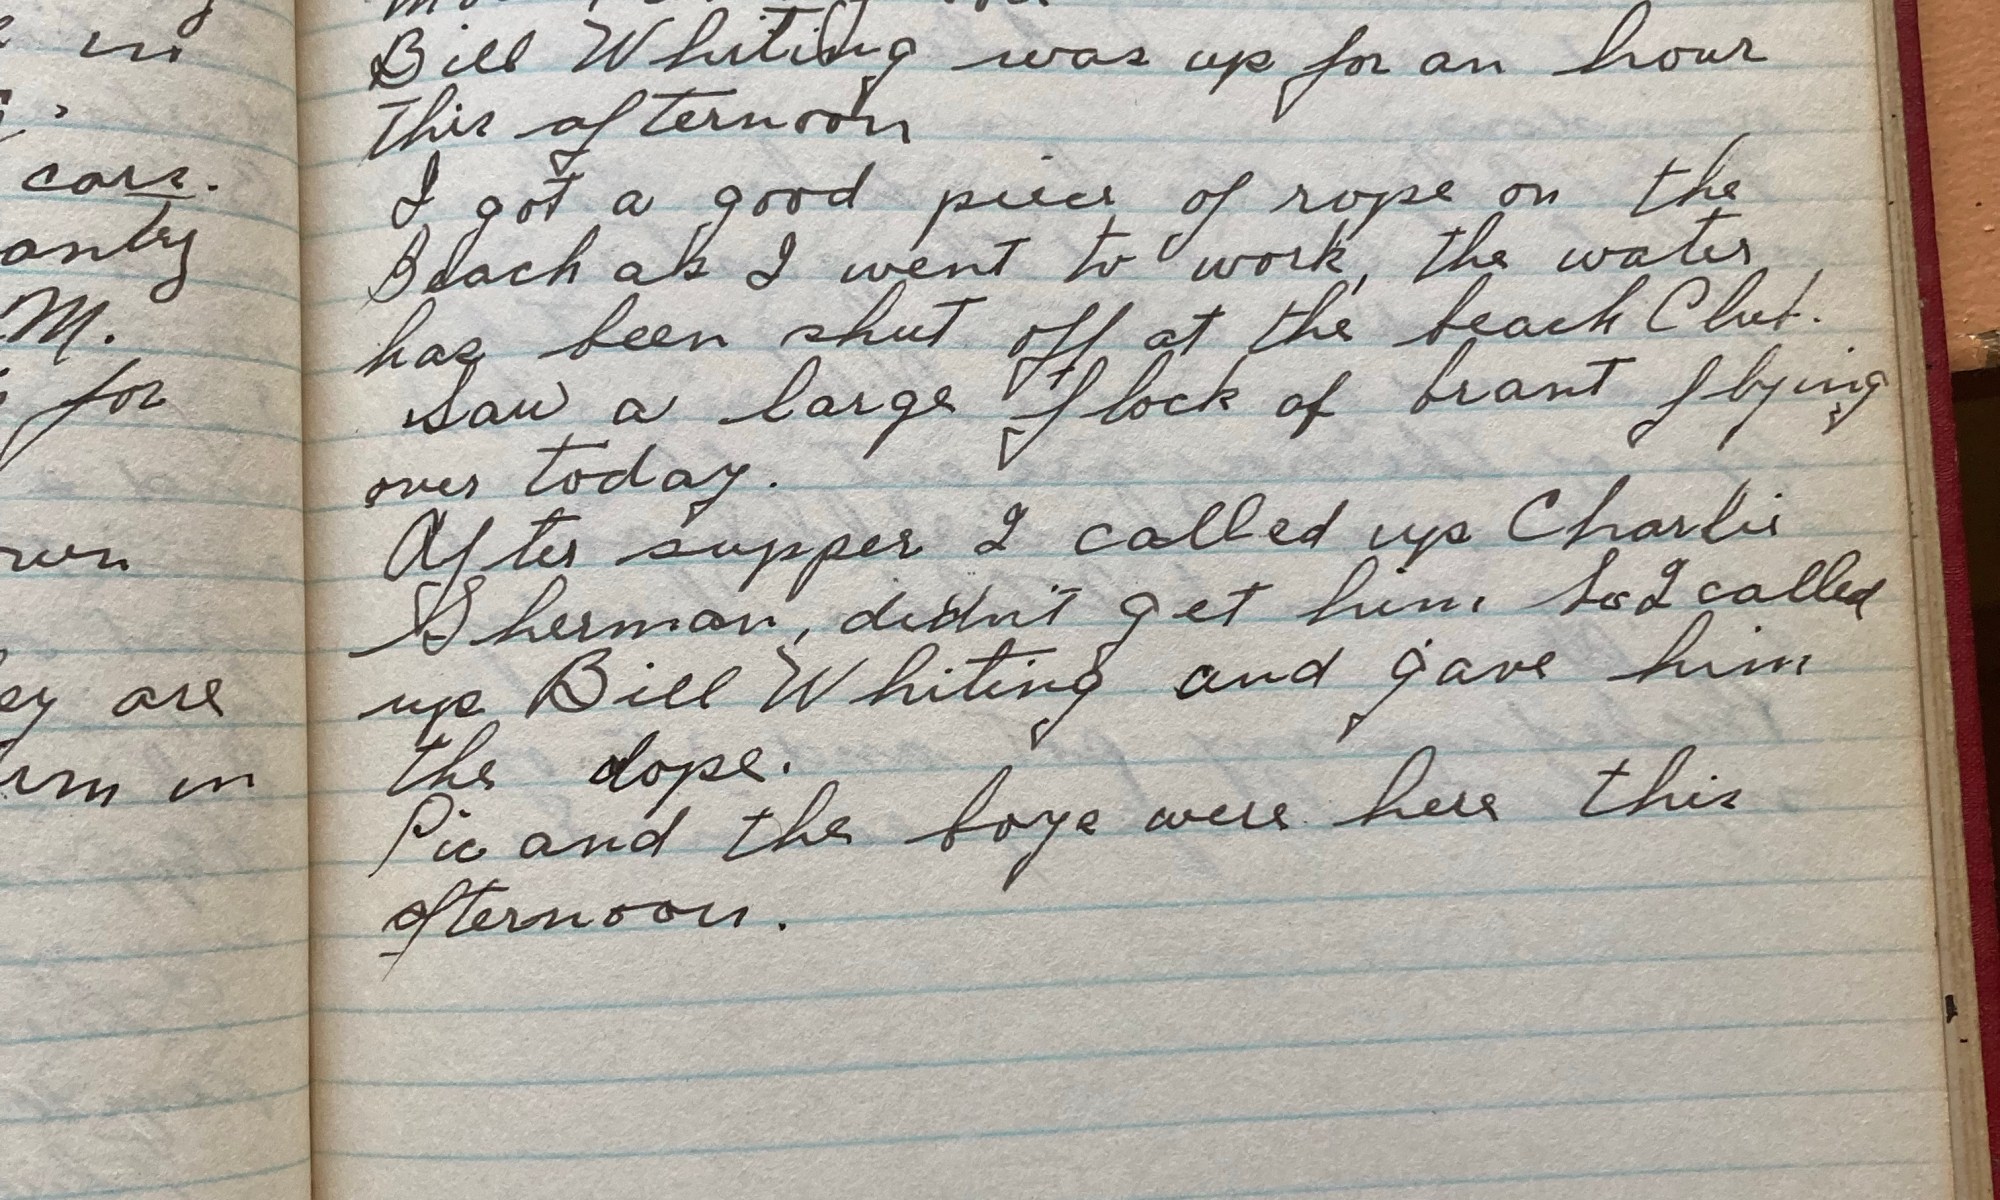 in
Bill Whiting was up for an hour
this afternoon
cars.
I got a good piece of rope on the
Beach as I went to work, the water
M.
has been shut off at the beach Club.
for
Saw a large flock of brant flying
over today.
After supper I called up Charlie
Sherman, didn't get him so I called
are
up Bill Whiting and gave him
in
the dope.
Pic and the boys were here this
afternoon.